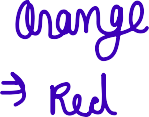 Orange
⇒ Red